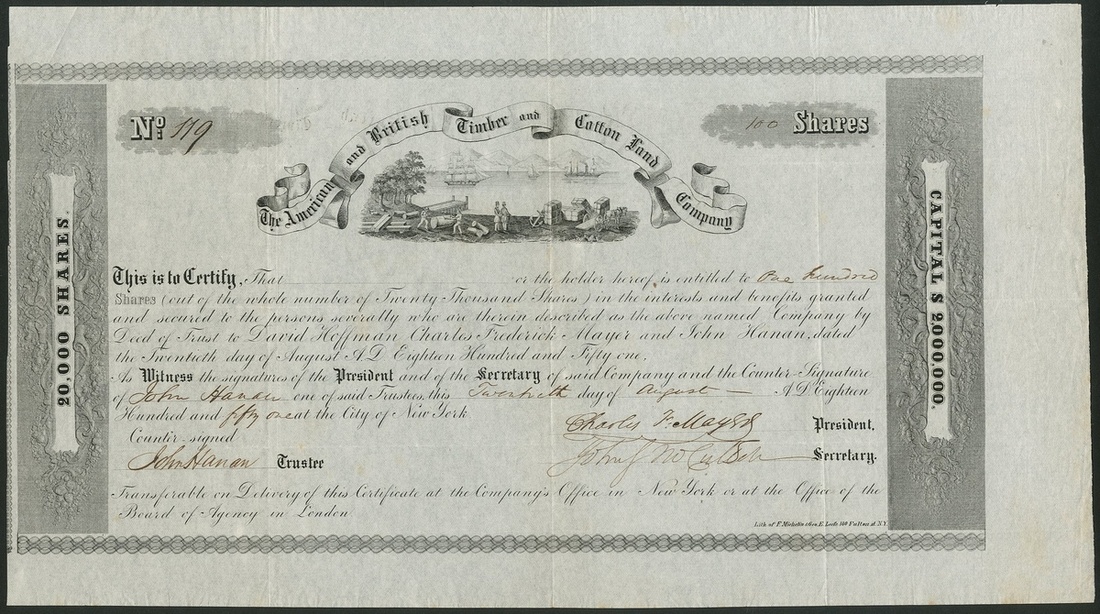 No. 119
The American and British Timber and Cotton Land Company
100 Shares
20,000 SHARES.
CAPITAL $ 2,000,000.
This is to Certify, That or the holder hereof, is entitled to One hundred
Shares (out of the whole number of Twenty Thousand Shares) in the interests and benefits granted
and secured to the persons severally who are therein described as the above named Company by
Deed of Trust to David Hoffman, Charles Frederick Mayer and John Hanan, dated
the Twentieth day of August A.D. Eighteen Hundred and Fifty one,
As Witness the signatures of the President and of the Secretary of said Company and the Counter-Signature
of John Hanan one of said Trustees, this Twentieth day of August A.D. Eighteen
Hundred and fifty one at the City of New York
Charles F. Mayer President,
Counter-signed
John Hanan Trustee
John Secretary.
Transferable on Delivery of this Certificate at the Company's Office in New York or at the Office of the
Board of Agency in London
Lith. of F. Michelin & Geo. E. Leefe 180 Fulton st. N.Y.